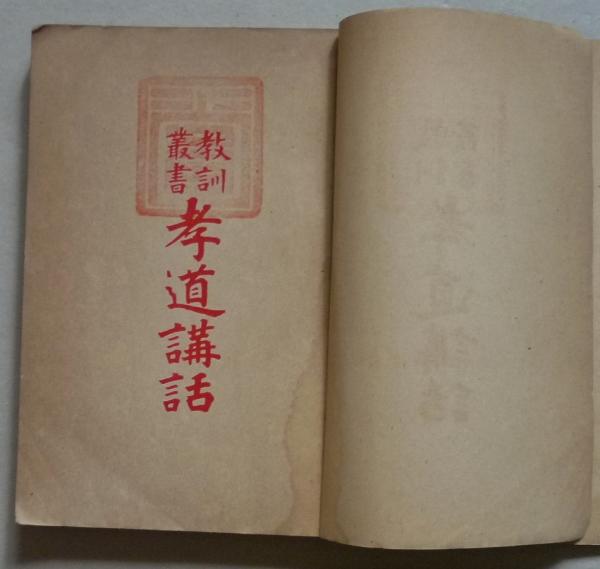 教訓
叢書
孝道講話